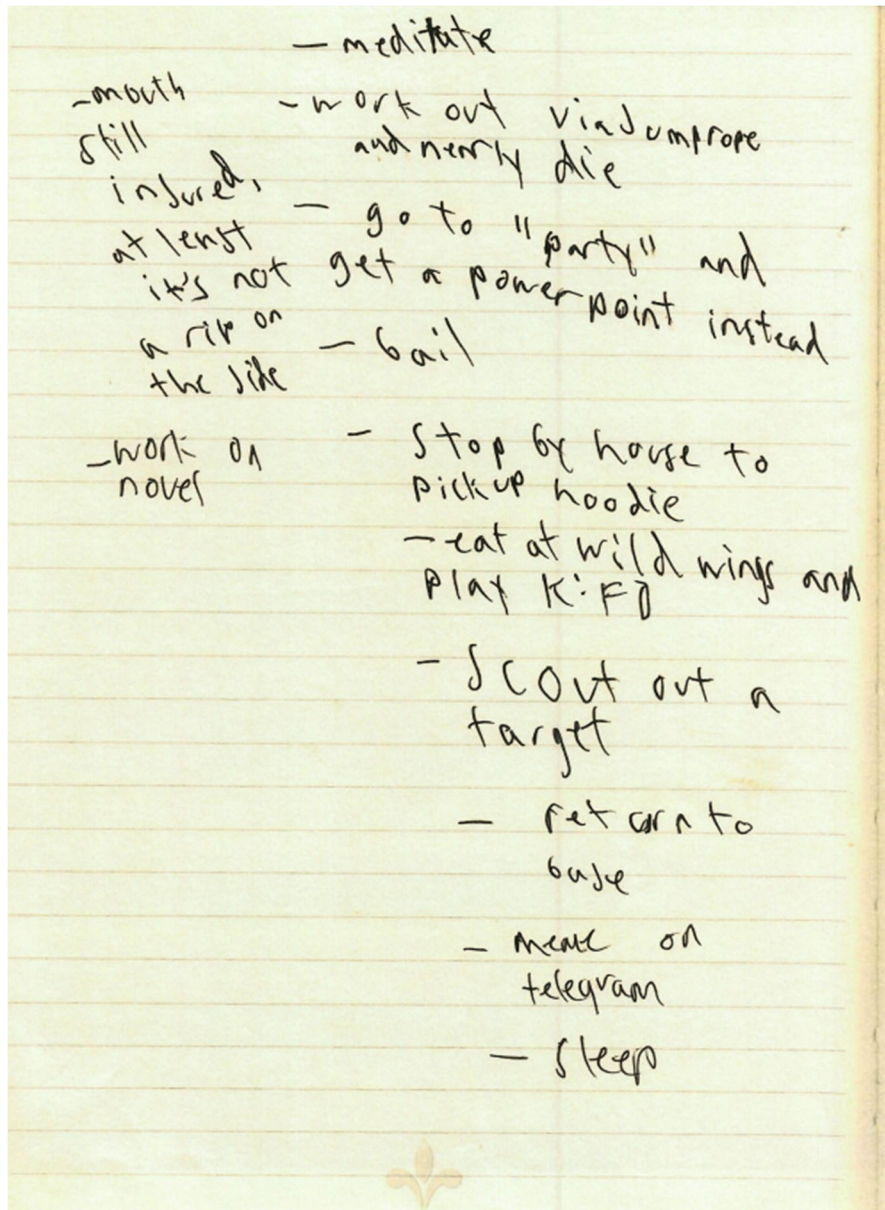 - meditate
- work out via Jumprope
and nearly die
- go to "party" and
get a powerpoint instead
- bail
- Stop by house to
pick up hoodie
- eat at wild wings and
play K:FD
- SCOut out a
target
- return to
base
- meme on
telegram
- sleep
- mouth
still
injured,
at least
it's not
a rip on
the side
- work on
novel